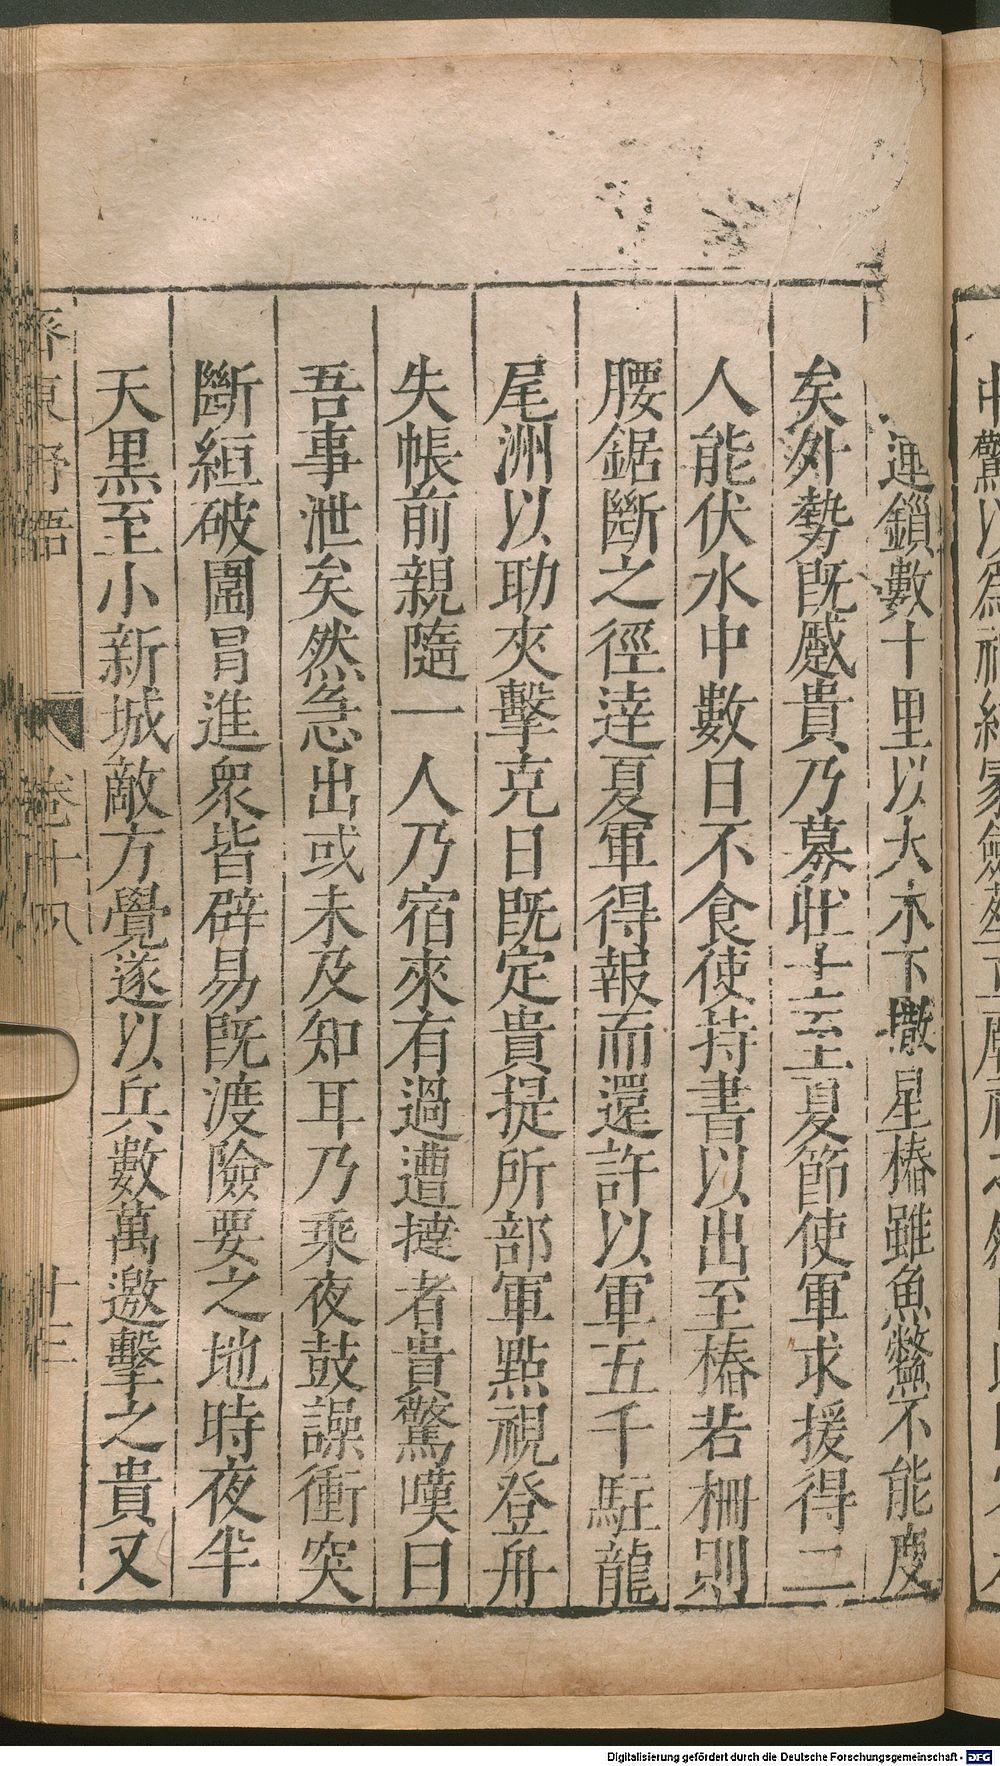 連鎖數十里以大木下撒星樁雖魚鱉不能度
矣外勢既蹙貴乃募壯士至夏節使軍求援得二
人能伏水中數日不食使持書以出至樁若柵則
腰鋸斷之徑達夏軍得報而還許以軍五千駐龍
尾洲以助夾擊克日既定貴提所部軍點視登舟
失帳前親隨一人乃宿來有過遭撻者貴驚嘆曰
吾事泄矣然急出或未及知耳乃乘夜鼓譟衝突
斷絙破圍冒進衆皆辟易既渡險要之地時夜半
天黑至小新城敵方覺遂以兵數萬邀擊之貴又
齊東野語 卷十八 廿三
Digitalisierung gefördert durch die Deutsche Forschungsgemeinschaft - DFG